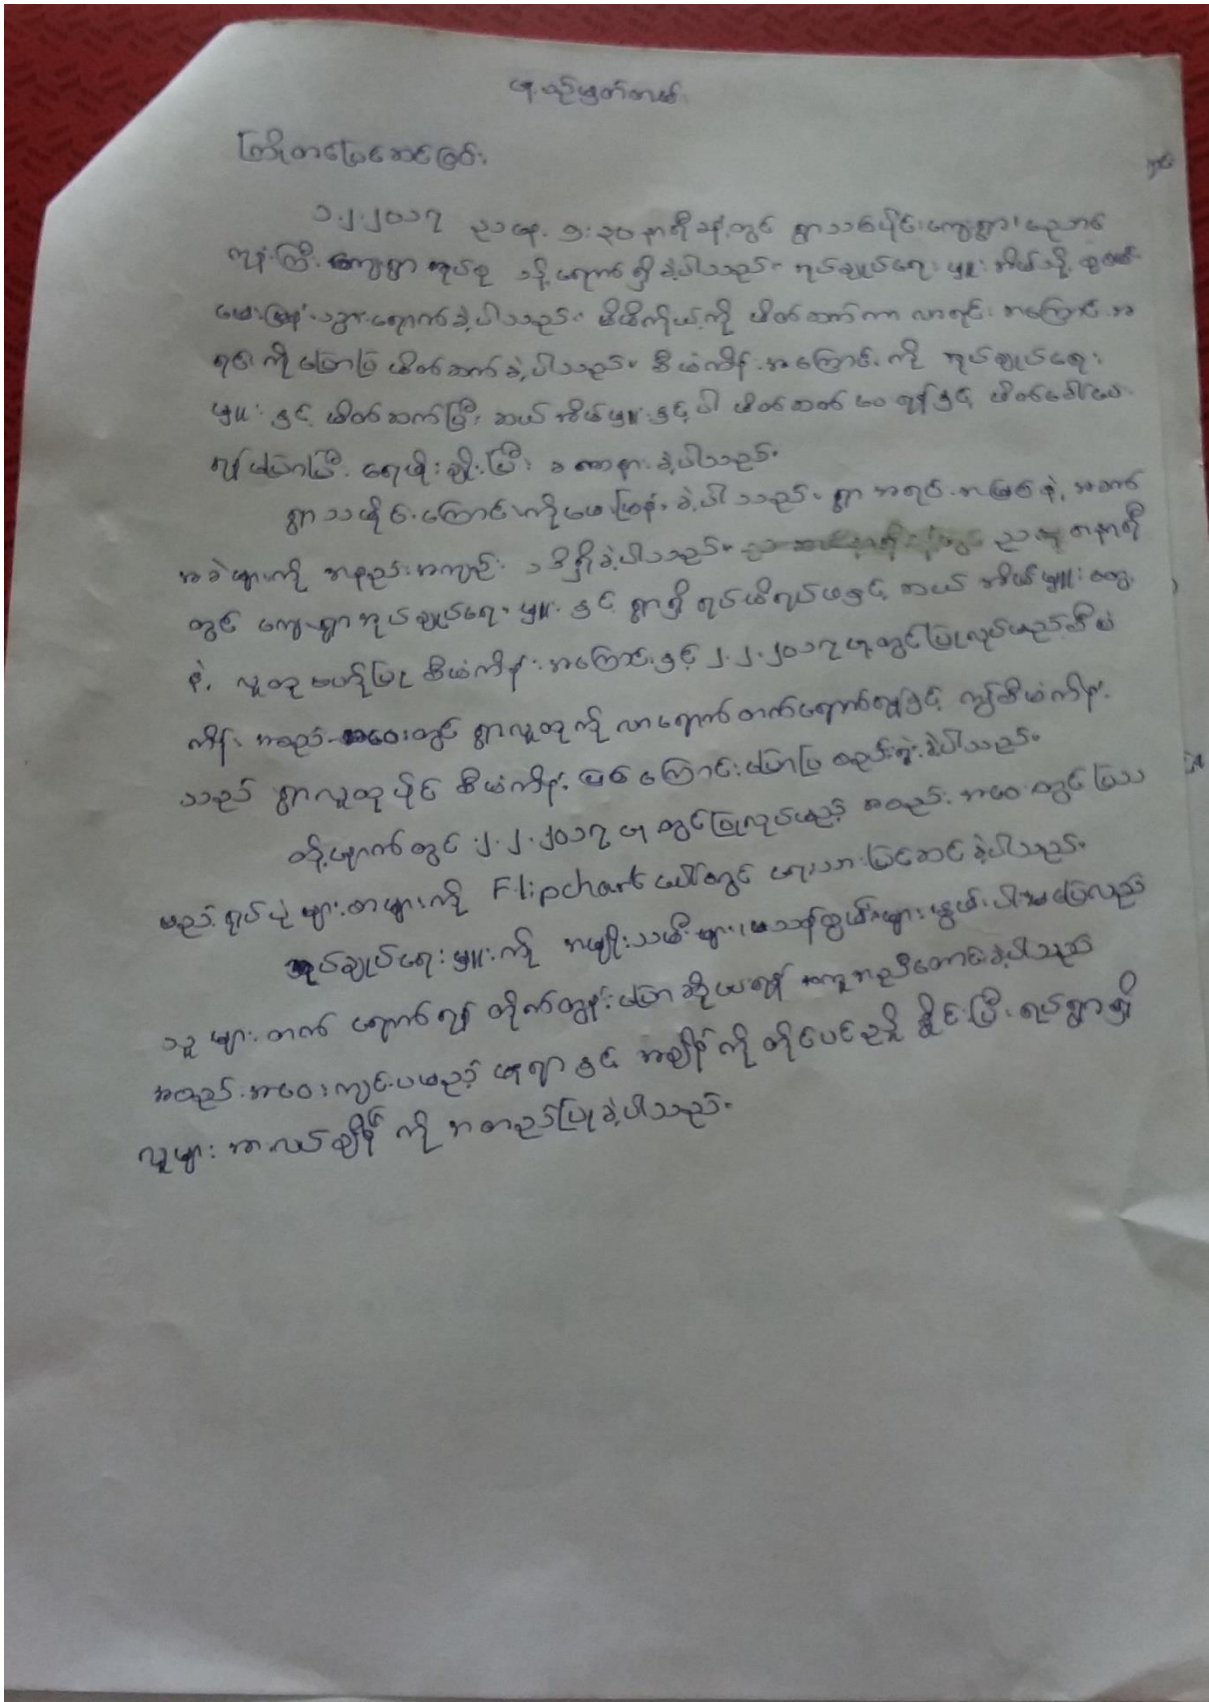 နေ့စဉ်မှတ်တမ်း
ကြိုတင်ပြင်ဆင်ခြင်း
၁.၂.၂၀၁၇ ညနေ ၅:၃၀ နာရီခန့်တွင် ရွာသစ်ပိုင်းကျေးရွာ၊ ညောင်
ကျွန်းကြီးကျေးရွာအုပ်စု သို့ရောက်ရှိခဲ့ပါသည်။ အုပ်ချုပ်ရေးမှူးအိမ်သို့
မေးမြန်းသွားရောက်ခဲ့ပါသည်။ မိမိကိုယ်ကို မိတ်ဆက်ကာ လာရင်းအကြောင်းအ
ရင်းကိုပြောပြမိတ်ဆက်ခဲ့ပါသည်။ စီမံကိန်းအကြောင်းကို အုပ်ချုပ်ရေး
မှူးနှင့် မိတ်ဆက်ပြီး ဆယ်အိမ်မှူးနှင့်ပါ မိတ်ဆက်ပေးရန်နှင့် ဖိတ်ခေါ်ပေး
ရန်ပြောပြီး ရေမိုးချိုးပြီး ခဏနားခဲ့ပါသည်။
ရွာသမိုင်းကြောင်းကိုမေးမြန်းခဲ့ပါသည်။ ရွာအရင်းအမြစ်နဲ့ အခက်
အခဲများကို အနည်းအကျဉ်းသိရှိခဲ့ပါသည်။ ည ၇ နာရီ
တွင် ကျေးရွာအုပ်ချုပ်ရေးမှူးနှင့် ရွာရှိရပ်မိရပ်ဖနှင့် ဆယ်အိမ်မှူးတွေ
နဲ့ လူထုဗဟိုပြုစီမံကိန်းအကြောင်းနှင့် ၂.၂.၂၀၁၇ နေ့တွင်ပြုလုပ်မည့်စီမံ
ကိန်း အစည်းအဝေးတွင် ရွာလူထုကိုလာရောက်တက်ရောက်ရန်နှင့် ဤစီမံကိန်း
သည် ရွာလူထုပိုင် စီမံကိန်းဖြစ်ကြောင်းပြောပြစည်းရုံးခဲ့ပါသည်။
ထို့နောက်တွင် ၂.၂.၂၀၁၇ နေ့တွင်ပြုလုပ်မည့် အစည်းအဝေးတွင်ပြသ
မည့် ရုပ်ပုံများ၊ စာများကို Flipchart ပေါ်တွင် ရေးသားပြင်ဆင်ခဲ့ပါသည်။
အုပ်ချုပ်ရေးမှူးကို အမျိုးသမီးများ၊ မသန်စွမ်းများ၊ နွမ်းပါးမပြေလည်
သူများ တက်ရောက်ရန် တိုက်တွန်းပြောဆိုပေးရန် အကူအညီတောင်းခဲ့ပါသည်
အစည်းအဝေးကျင်းပမည့်နေရာနှင့် အချိန်ကို တိုင်ပင်ညှိနှိုင်းပြီး ရပ်ရွာရှိ
လူများ အားလပ်ချိန်ကို အတည်ပြုခဲ့ပါသည်။